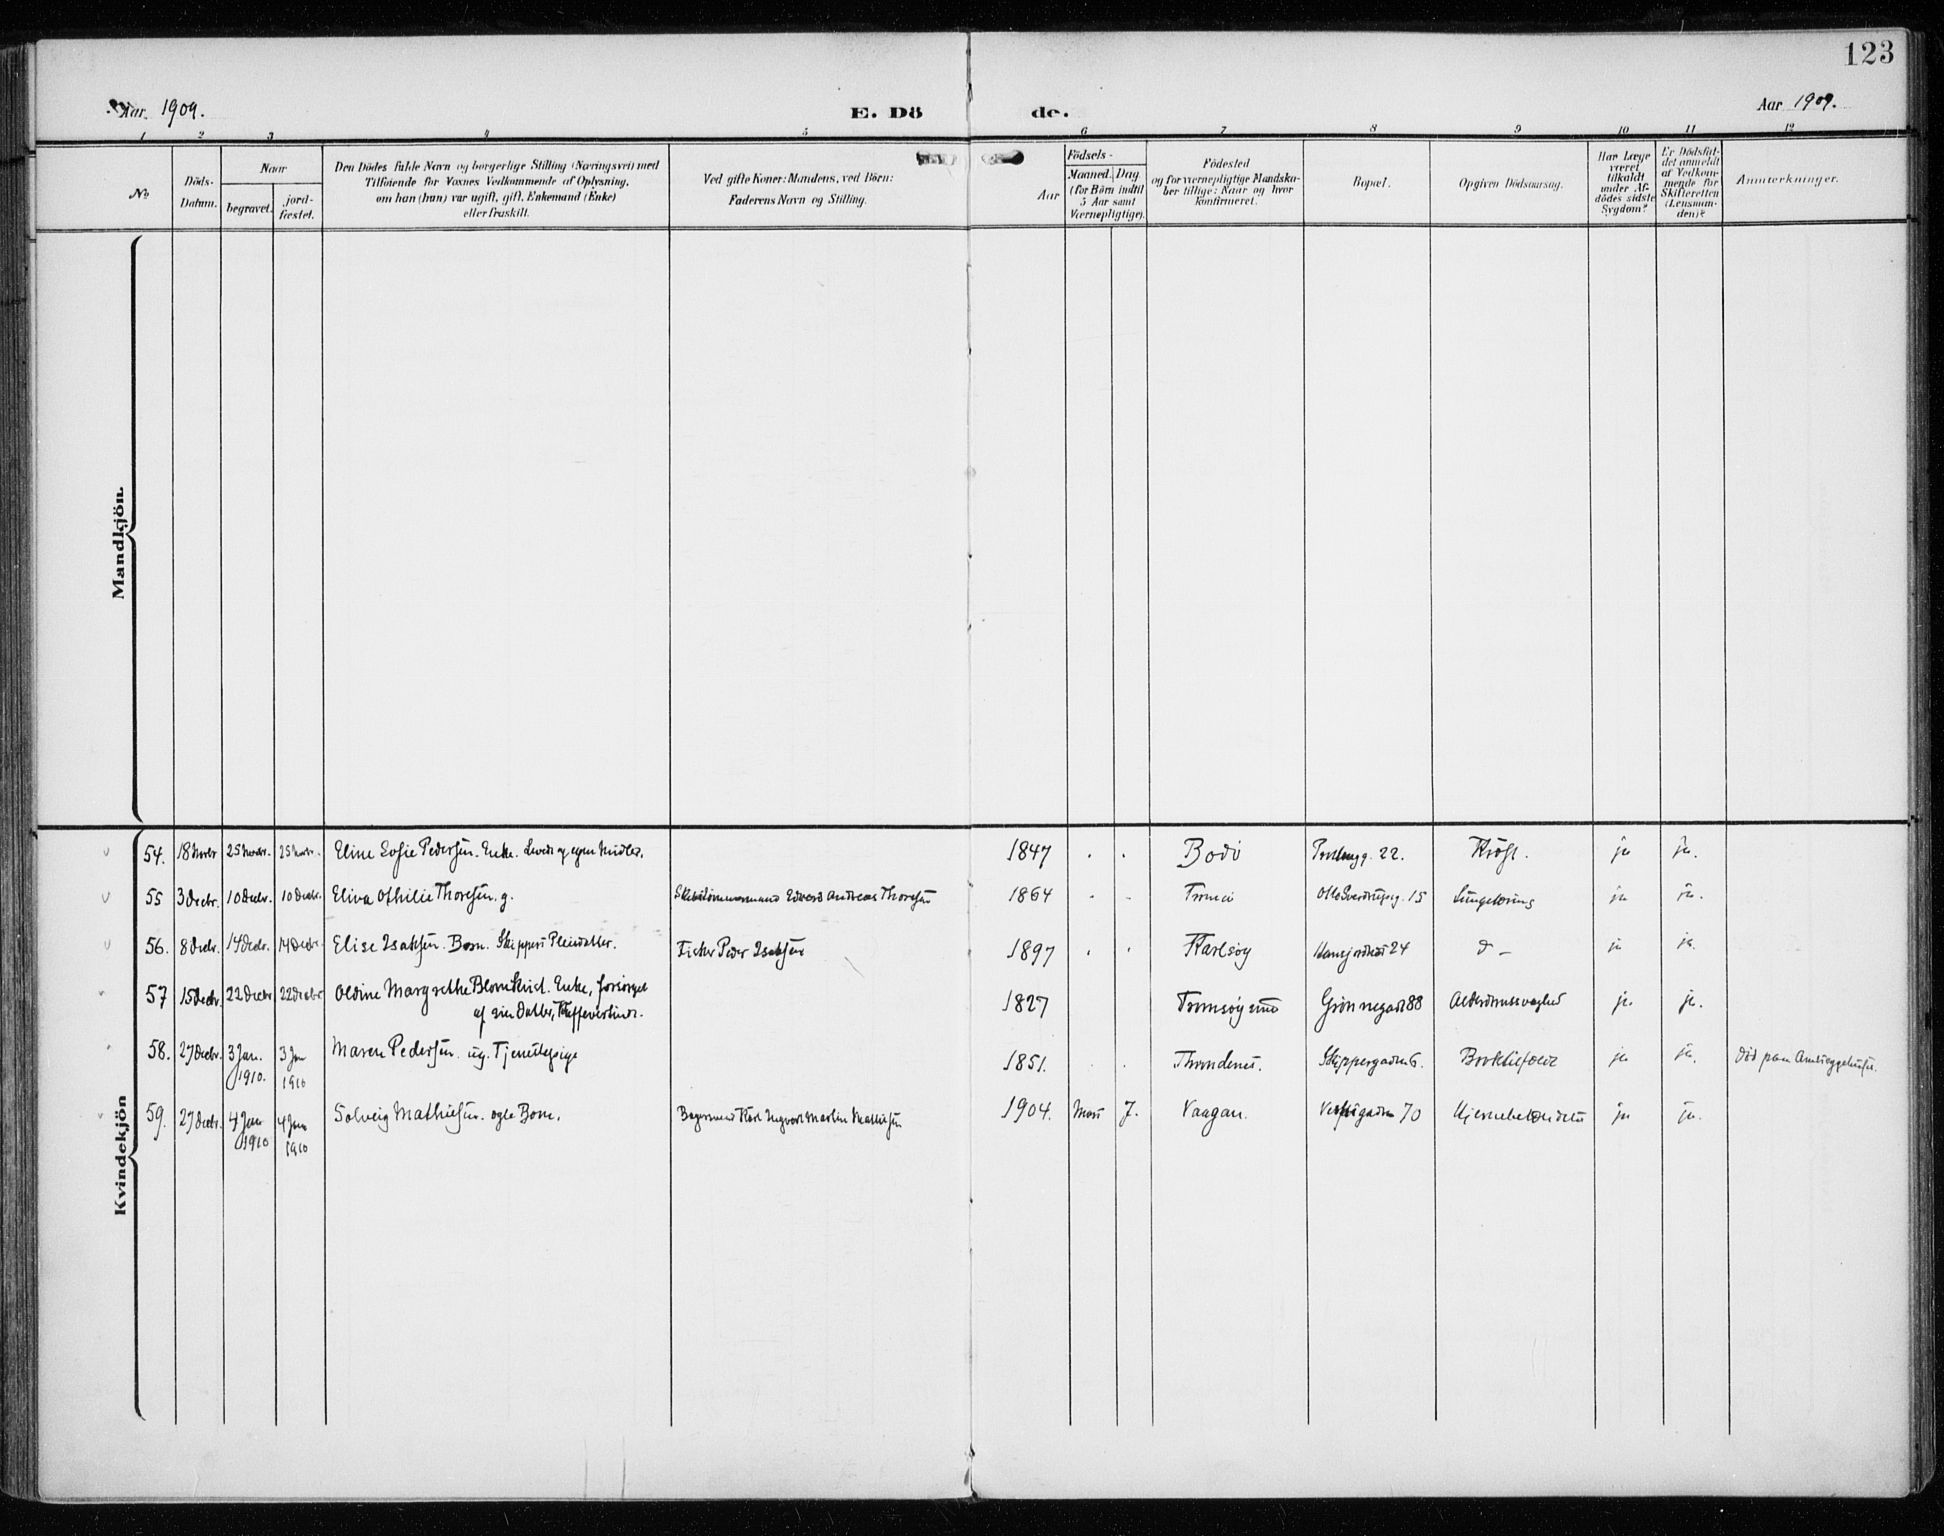 123
Aar 1909.
E. Döde.
Aar 1909.
1 2 3 4 5 6 7 8 9 10 11 12
No
Döds-Datum.
Naar
begravet.
jord-fæstet.
Den Dödes fulde Navn og borgerlige Stilling (Næringsvei) med
Tilföiende for Voxnes Vedkommende af Oplysning,
om han (hun) var ugift, gift, Enkemand (Enke)
eller fraskilt.
Ved gifte Koner: Mandens, ved Börn:
Faderens Navn og Stilling.
Födsels-
Aar
Maaned. Dag
(for Börn indtil
5 Aar samt
Værnepligtige).
Födested
og for værnepligtige Mandska-
ber tillige: Naar og hvor
konfirmeret.
Bopæl.
Opgiven Dödsaarsag.
Har Læge
været
tilkaldt
under Af-
dödes sidste
Sygdom?
Er Dödsfal-
det anmeldt
af Vedkom-
mende for
Skifteretten
(Lensman-
den)?
Anmærkninger.
Mandkjön.
Kvindekjön
54. 18 Novbr 25 Novbr. 25 Novbr. Eline Sofie Pedersen. Enke. Leved af egne Midler. 1847 Bodö 22. Kræft. ja ja.
55 3 Decbr. 10 Decbr. 10 Decbr. Othilie Thoresen. g. Skibstömmermand Edvard Andreas Thoresen 1864 Tromsö Otto Sverdrupsg. 15 ja ja.
56. 8 Decbr. 14 Decbr. 14 Decbr. Elise Isaksen. Barn. Skippers Pleiedatter. Fisker Peder Isaksen 1897 Karlsöy 24 d – ja ja.
57 15 Decbr. 22 Decbr 22 Decbr Oldine Margrethe Blomkvist. Enke, forsörget
af sin Datter, 1827 Tromsöysund Grönnegaden 88 Alderdomssvaghed ja. ja.
58. 27 Decbr. 3 Jan. 1910. 3 Jan 1910 Maren Pedersen. ug. Tjenestepige 1851. Throndenes. Skippergaden 6. ja ja. Död paa Amtssygehuset.
59. 27 Decbr. 4 Jan 1910 4 Jan 1910 Solveig Mathisen. ægte Barn. Karl Ingvart Martin Mathisen 1904. Mars 7. Vaagan. 70 Hjernebetændelse ja ja.